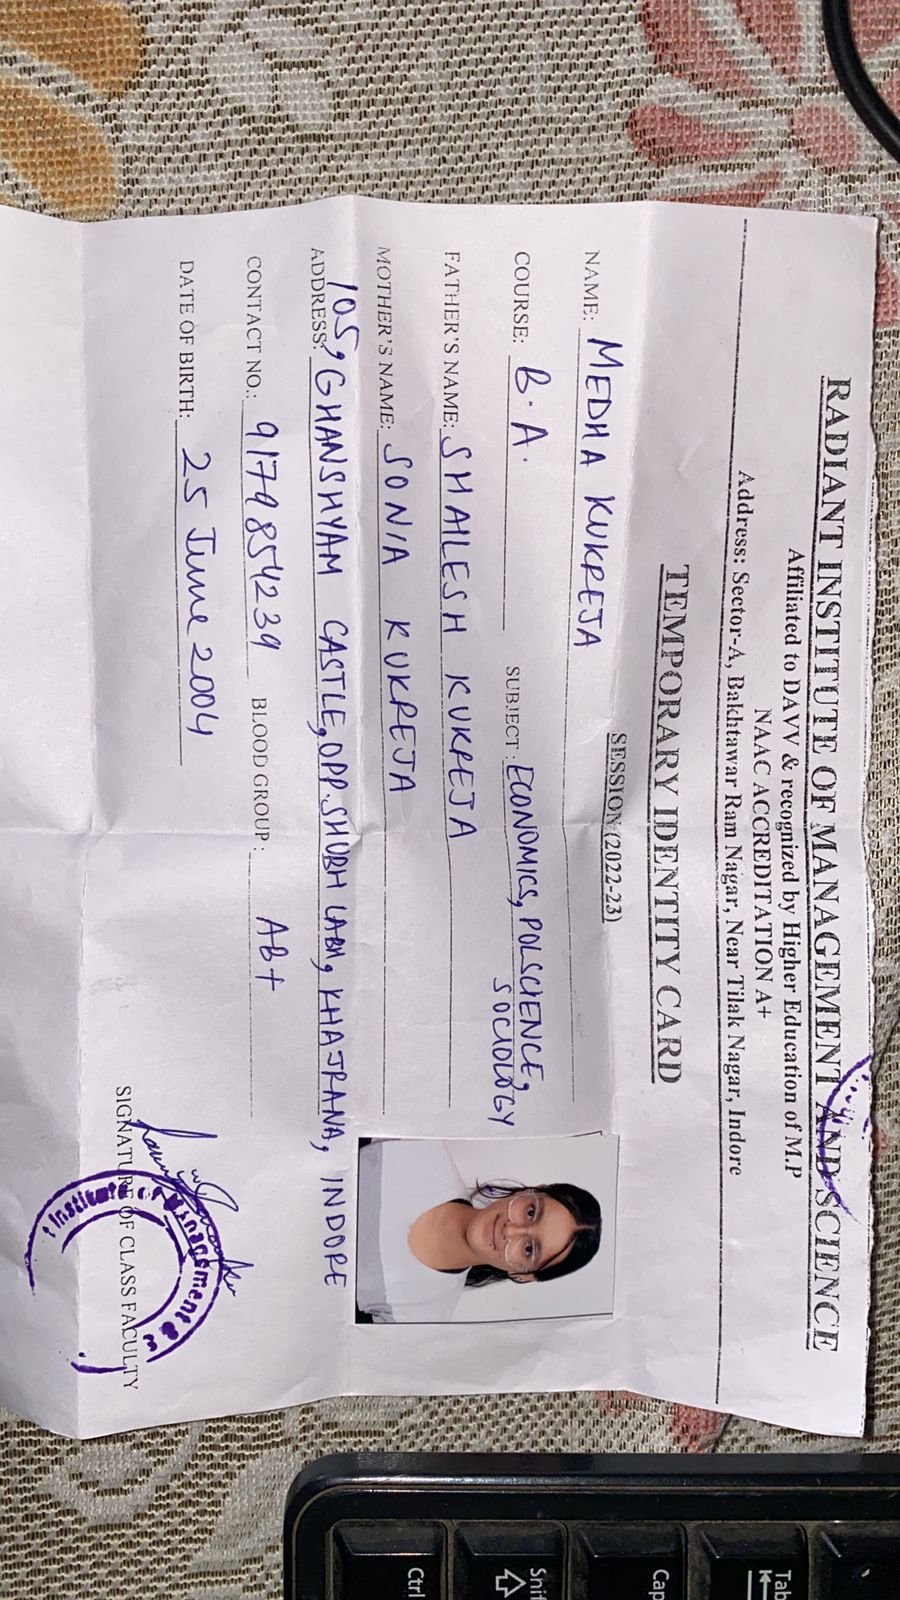 RADIANT INSTITUTE OF MANAGEMENT AND SCIENCE
Affiliated to DAVV & recognized by Higher Education of M.P
NAAC ACCREDITATION A+
Address: Sector-A, Bakhtawar Ram Nagar, Near Tilak Nagar, Indore
TEMPORARY IDENTITY CARD
SESSION (2022-23)
NAME: MEDHA KUKREJA
COURSE: B.A. SUBJECT: ECONOMICS, POLSCIENCE,
SOCIOLOGY
FATHER'S NAME: SHAILESH KUKREJA
MOTHER'S NAME: SONIA KUKREJA
ADDRESS: 105, GHANSHYAM CASTLE, OPP. SHUBH LABH, KHAJRANA, INDORE
CONTACT NO.: 9179854239 BLOOD GROUP: AB+
DATE OF BIRTH: 25 June 2004
SIGNATURE OF CLASS FACULTY
Institute of Management &
Tab
Cap
Shif
Ctrl